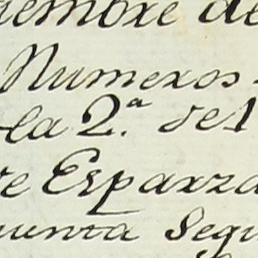 iembre de
Numeros
la 2.ª de 1
re Esparza
uenta Segu